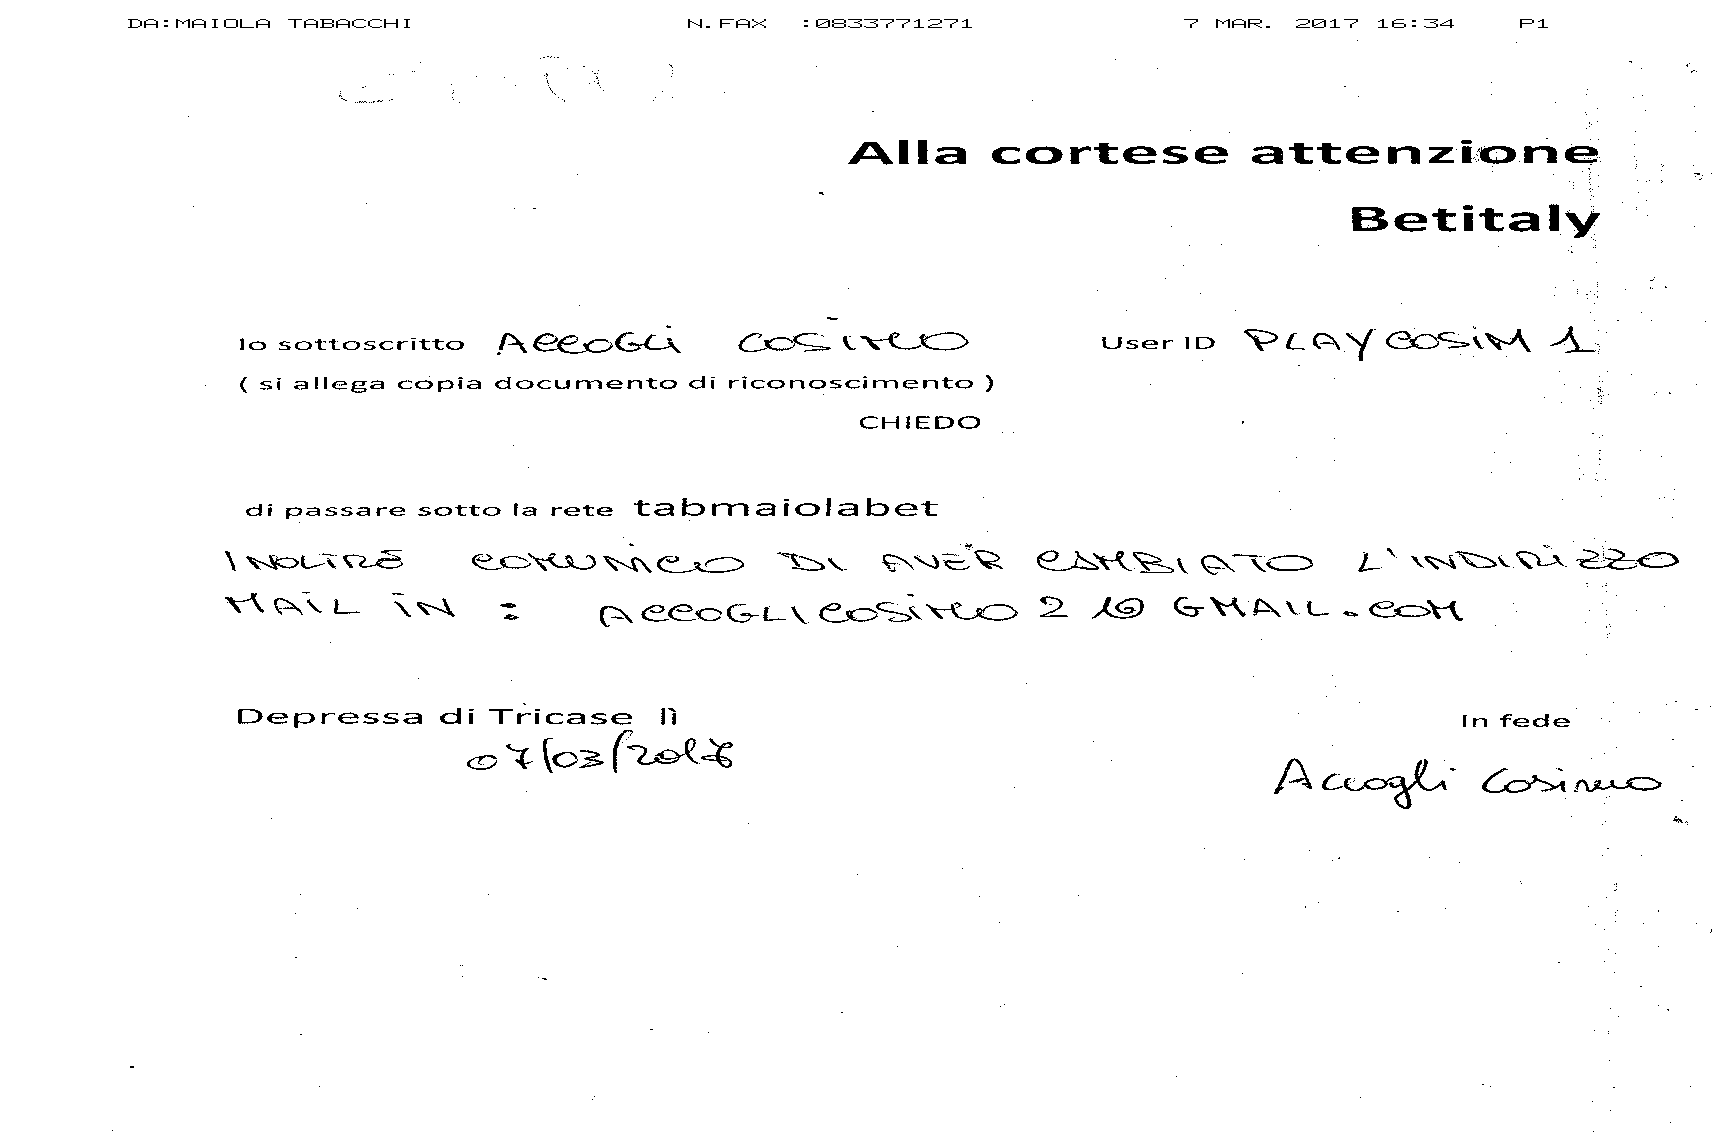 DA:MAIOLA TABACCHI N.FAX :0833771271 7 MAR. 2017 16:34 P1
Alla cortese attenzione
Betitaly
Io sottoscritto ACCOGLI COSIMO User ID PLAYCOSIM1
( si allega copia documento di riconoscimento )
CHIEDO
di passare sotto la rete tabmaiolabet
INOLTRE COMUNICO DI AVER CAMBIATO L'INDIRIZZO
MAIL IN : ACCOGLICOSIMO2 GMAIL.COM
Depressa di Tricase lì
07/03/
In fede
Accogli Cosimo